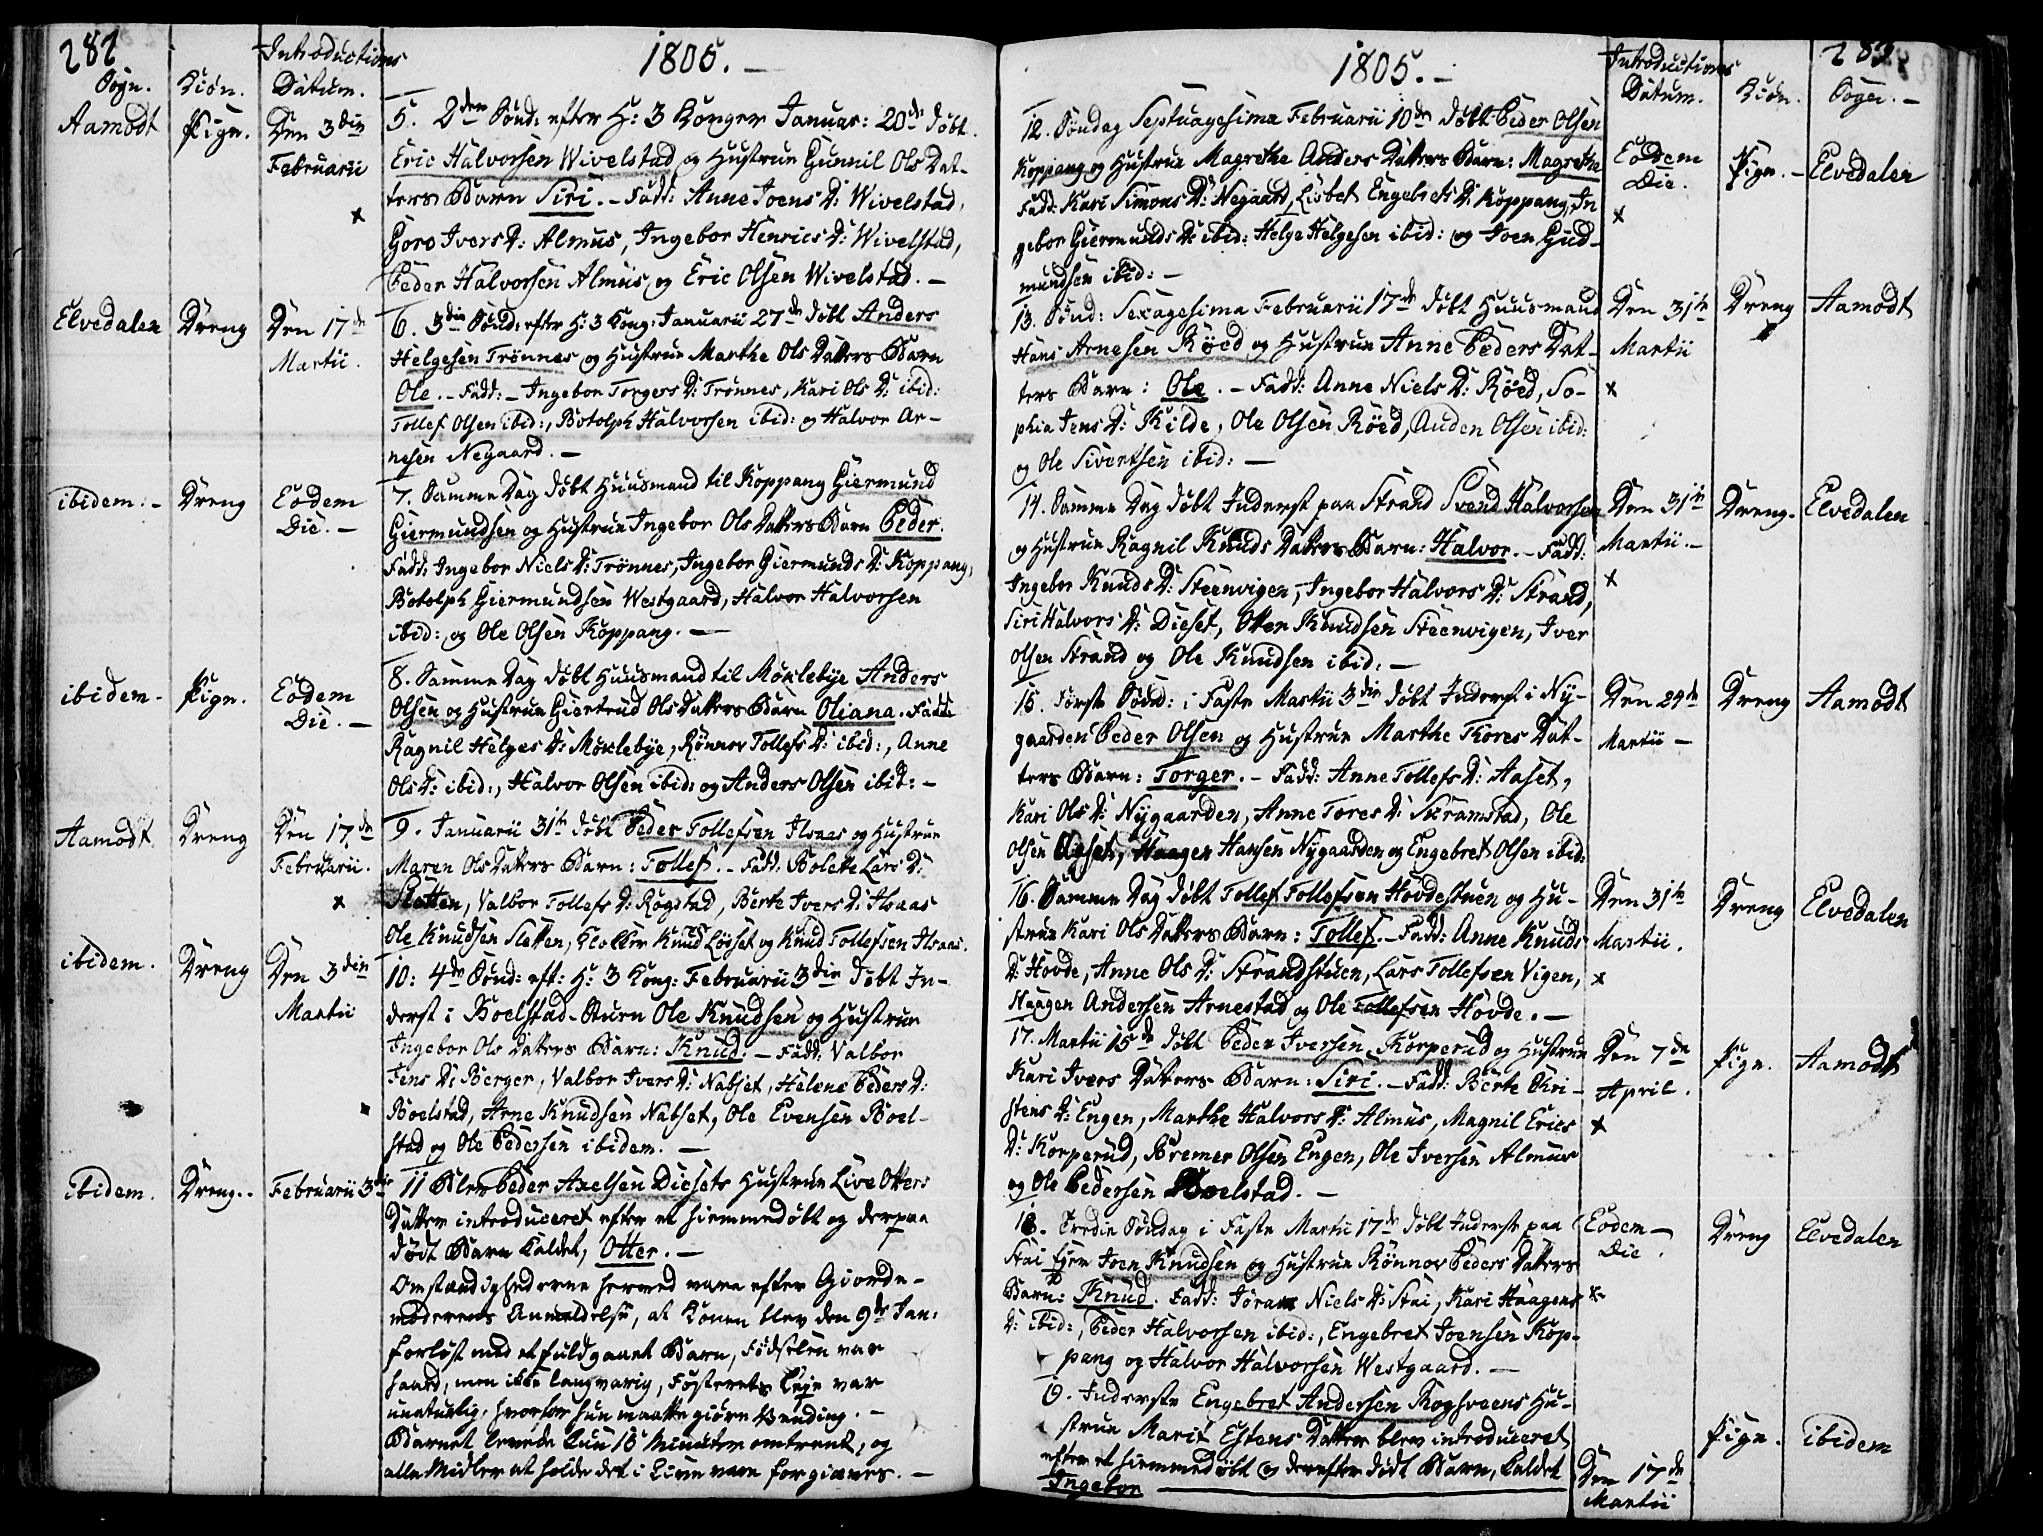 282
Sogn.
Kiøn.
Introductions
Datum.
1805. —
Aamodt
Pige.
Den 3die
Februarii
5. 2den Sønd: efter H: 3 Konger Januar: 20de døbt
Eric Halvorsen Wivelstad og Hustrue Gunnil Ols Dat-
ters Barn Siri. — Fadd: Anne Joens D: Wivelstad,
Goro Ivers D: Almus, Ingebor Henrics D: Wivelstad,
Peder Halvorsen Almus og Eric Olsen Wivelstad. —
Elvedalen
Dreng
Den 17de
Martii.
6. 3die Sønd: efter H: 3 Kong: Januarii 27de døbt Anders
Helgesen Trønnes og Hustrue Marthe Ols Datters Barn
Ole. — Fadd: — Ingebor Torgers D: Trønnes, Kari Ols D: ibid:
Tollef Olsen ibid:, Botolph Halvorsen ibid: og Halvor Ar-
nesen Negaard. —
ibidem. —
Dreng
Eodem
Die. —
7. Samme Dag døbt Huusmand til Koppang Giermund
Giermundsen og Hustrue Ingebor Ols Datters Barn Peder.
Fadd: Ingebor Niels D: Trønnes, Ingebor Giermunds D: Koppang,
Botolph Giermundsen Westgaard, Halvor Halvorsen
ibid: og Ole Olsen Koppang. —
ibidem —
Pige.
Eodem
Die. —
8. Samme Dag døbt Huusmand til Møklebye Anders
Olsen og Hustrue Giertrud Ols Datters Barn Oliana. Fadd:
Ragnil Helges D: Møklebye, Rønnov Tollefs D: ibid:, Anne
Ols D: ibid:, Halvor Olsen ibid: og Anders Olsen ibid: —
Aamodt
Dreng
Den 17de
Februarii.
9. Januarii 31te døbt Peder Tollefsen Ilsaas og Hustrue
Maren Ols Datters Barn: Tollef. — Fadd: Bolette Lars D:
Sletten, Valbor Tollefs D: Røgstad, Berte Ivers D: Ilsaas
Ole Knudsen Sletten, Klokker Knud Løset og Knud Tollefsen Ilsaas.
ibidem.
Dreng
Den 3die
Martii
10: 4de Sønd: eft: H: 3 Kong: Februarii 3die døbt In-
derst i Boelstad-Stuen Ole Knudsen og Hustrue
Ingebor Ols Datters Barn: Knud. — Fadd: Valbor
Jens D: Berger, Valbor Ivers D: Nabset, Helene Peders D:
Boelstad, Arne Knudsen Nabset, Ole Evensen Boel-
stad og Ole Pedersen ibidem. —
ibidem.
Dreng..
Februarii 3die
11 Blev Peder Axelsen Diesets Hustrue Live Otters
Datter introduceret efter et hiemmedøbt og derpaa
dødt Barn kaldet, Otter. —
Omstændighederne hermed vare efter Giorde-
moderens Anmeldelse, at Konen blev den 9de Jan:
forløst med et fuldgaaet Barn, Fødselen var
haard, men ikke langvarig, Fosterets Leje var
unaturlig, hvorfor hun maatte giøre Vending. —
Barnet levede kun 15 Minuter omtrent, og
alle Midler at holde det i Live vare forgieves. —
1805. —
Introductions
Datum.
Kiøn.
283
Sogn. —
12. Søndag Septuagesima Februarii 10de døbt Peder Olsen
Koppang og Hustrue Magrethe Anders Datters Barn: Magrethe
Fadd: Kari Simons D: Negaard, Lisbet Engebrets D: Koppang, In
gebor Giermunds D: ibid: Helge Helgesen ibid: og Joen Gud-
mundsen ibid: —
Eodem
Die.
Pige. —
Elvedalen
13. Sønd: Sexagesima Februarii 17de døbt Huusmand
Hans Arnesen Røed og Hustrue Anne Peders Dat-
ters Barn: Ole. — Fadd: Anne Niels D: Røed, So-
phia Jens D: Kilde, Ole Olsen Røed, Auden Olsen ibid:
og Ole Sivertsen ibid: —
Den 31te
Martii
Dreng
Aamodt
14. Samme Dag døbt Inderst paa Strand Svend Halvorsen
og Hustrue Ragnil Knuds Datters Barn: Halvor. — Fadd:
Ingebor Knuds D: Steenvigen, Ingebor Halvors D: Strand,
Siri Halvors D: Dieset, Otter Knudsen Steenvigen, Iver
Olsen Strand og Ole Knudsen ibid: —
Den 31te
Martii. —
Dreng.
Elvedalen
15. Første Sønd: i Faste Martii 3die døbt Inderst i Ny-
gaarden Peder Olsen og Hustrue Marthe Tores Dat-
ters Barn: Torger. — Fadd: Anne Tollefs D: Aaset,
Kari Ols D: Nygaarden, Anne Tores D: Skramstad, Ole
Olsen Aaset, Haagen Hansen Nygaarden og Engebret Olsen ibid:
Den 24de
Martii —
Dreng
Aamodt
16. Samme Dag døbt Tollef Tollefsen Hovdestuen og Hu-
strue Kari Ols Datters Barn: Tollef. — Fadd: Anne Knuds
D: Hovde, Anne Ols D: Strandstuen, Lars Tollefsen Vigen,
Haagen Andersen Arnestad og Ole Tollefsen Hovde. —
Den 31te
Martii.
Dreng
Elvedalen
17. Martii 15de døbt Peder Iversen Korperud og Hustrue
Kari Ivers Datters Barn: Siri. — Fadd: Berte Kri-
stens D: Engen, Marthe Halvors D: Almus, Magnil Erics
D: Korperud, Bremer Olsen Engen, Ole Iversen Almus
og Ole Pedersen Boelstad. —
Den 7de
April.
Pige.
Aamodt
18. Tredie Søndag i Faste Martii 17de døbt Inderst paa
Stai Ejer Joen Knudsen og Hustrue Rønnov Peders Datters
Barn: Knud. Fadd: Jøran Niels D: Stai, Kari Haagens
D: ibid:, Peder Halvorsen ibid:, Engebret Joensen Kop-
pang og Halvor Halvorsen Westgaard. —
Eodem —
Die.
Dreng
Elvedalen
19. Inderste Engebret Andersen Kogsveens Hu-
strue Marit Estens Datter blev introduceret
efter et hiemmedøbt og derefter dødt Barn, kaldet
Ingebor
Den 17de
Martii
Pige.
ibidem